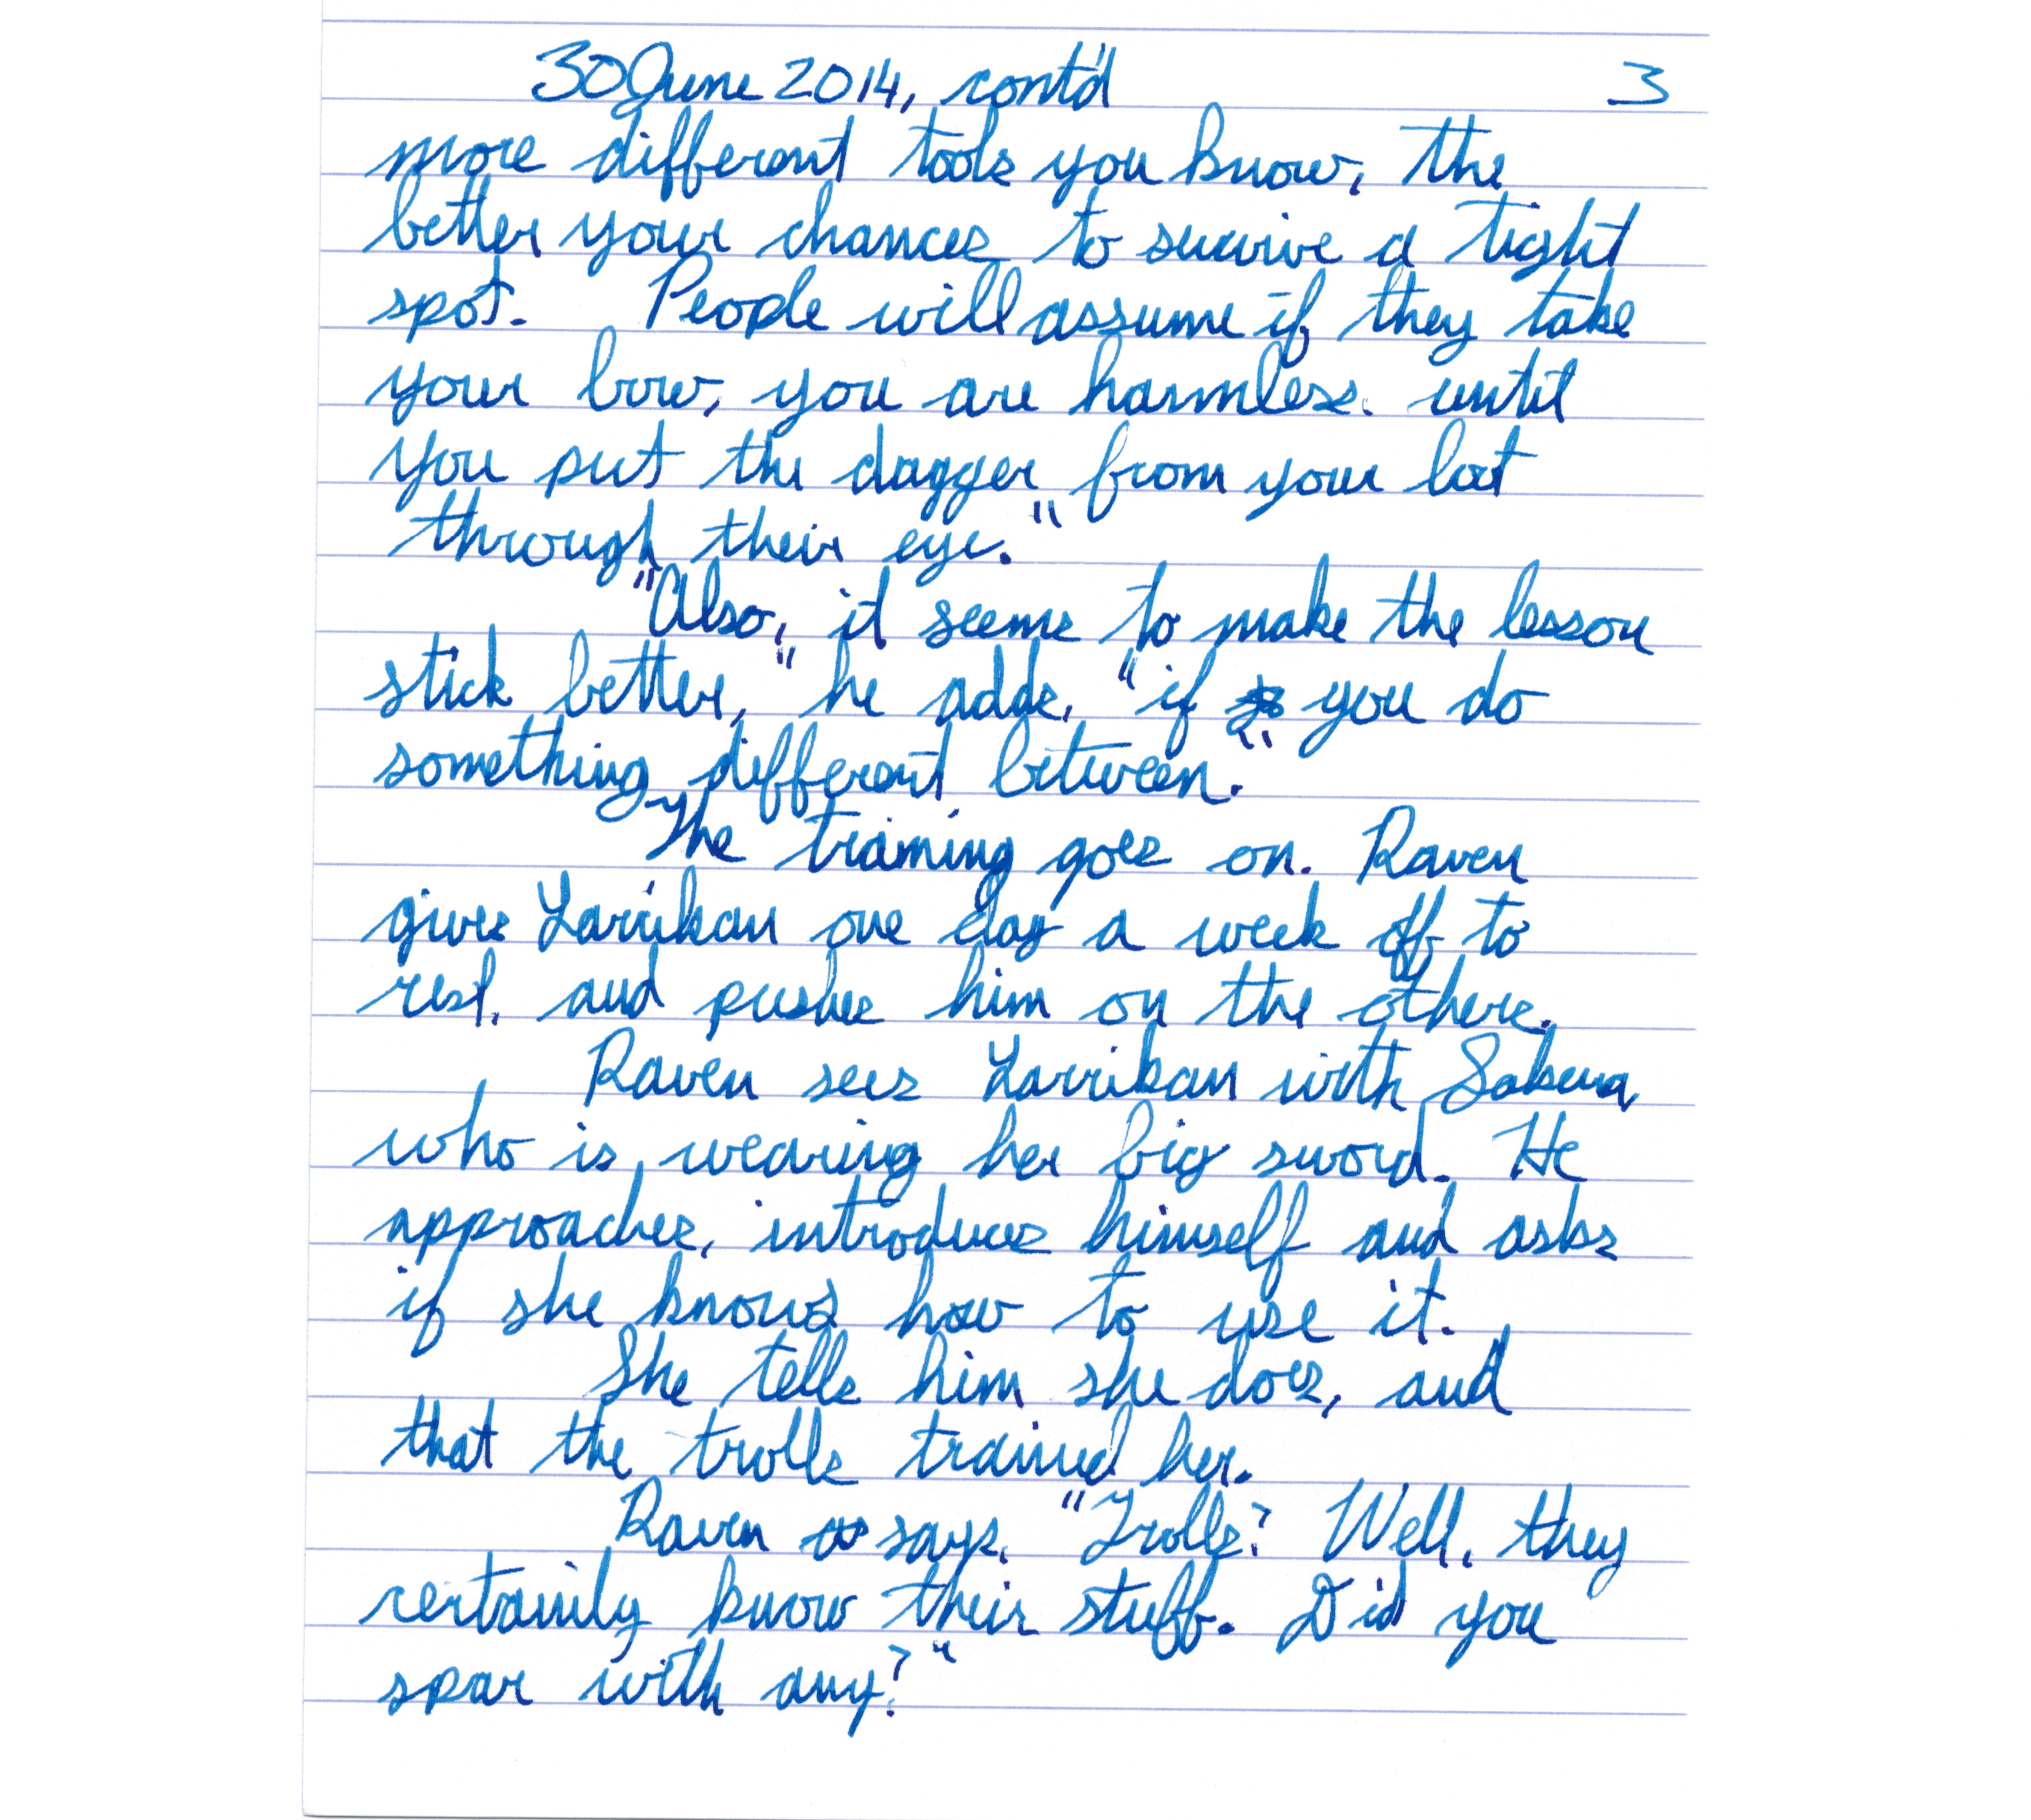 30 June 2014, cont'd 3
more different tools you know, the
better your chances to survive a tight
spot. People will assume if they take
your bow, you are harmless. until
you put the dagger from your boot
through their eye."
"Also, it seems to make the lesson
stick better," he adds, "if you do
something different between."
The training goes on. Raven
gives Larrikan one day a week off to
rest, and pushes him on the others.
Raven sees Larrikan with Sabena,
who is wearing her big sword. He
approaches, introduces himself and asks
if she knows how to use it.
She tells him she does, and
that the trolls trained her.
Raven says, "Trolls? Well, they
certainly know their stuff. Did you
spar with any?"